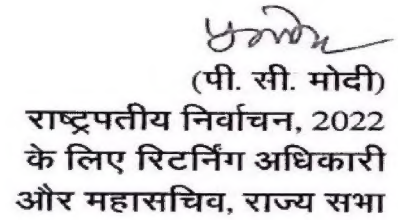 (पी. सी. मोदी)
राष्ट्रपतीय निर्वाचन, 2022
के लिए रिटर्निंग अधिकारी
और महासचिव, राज्य सभा